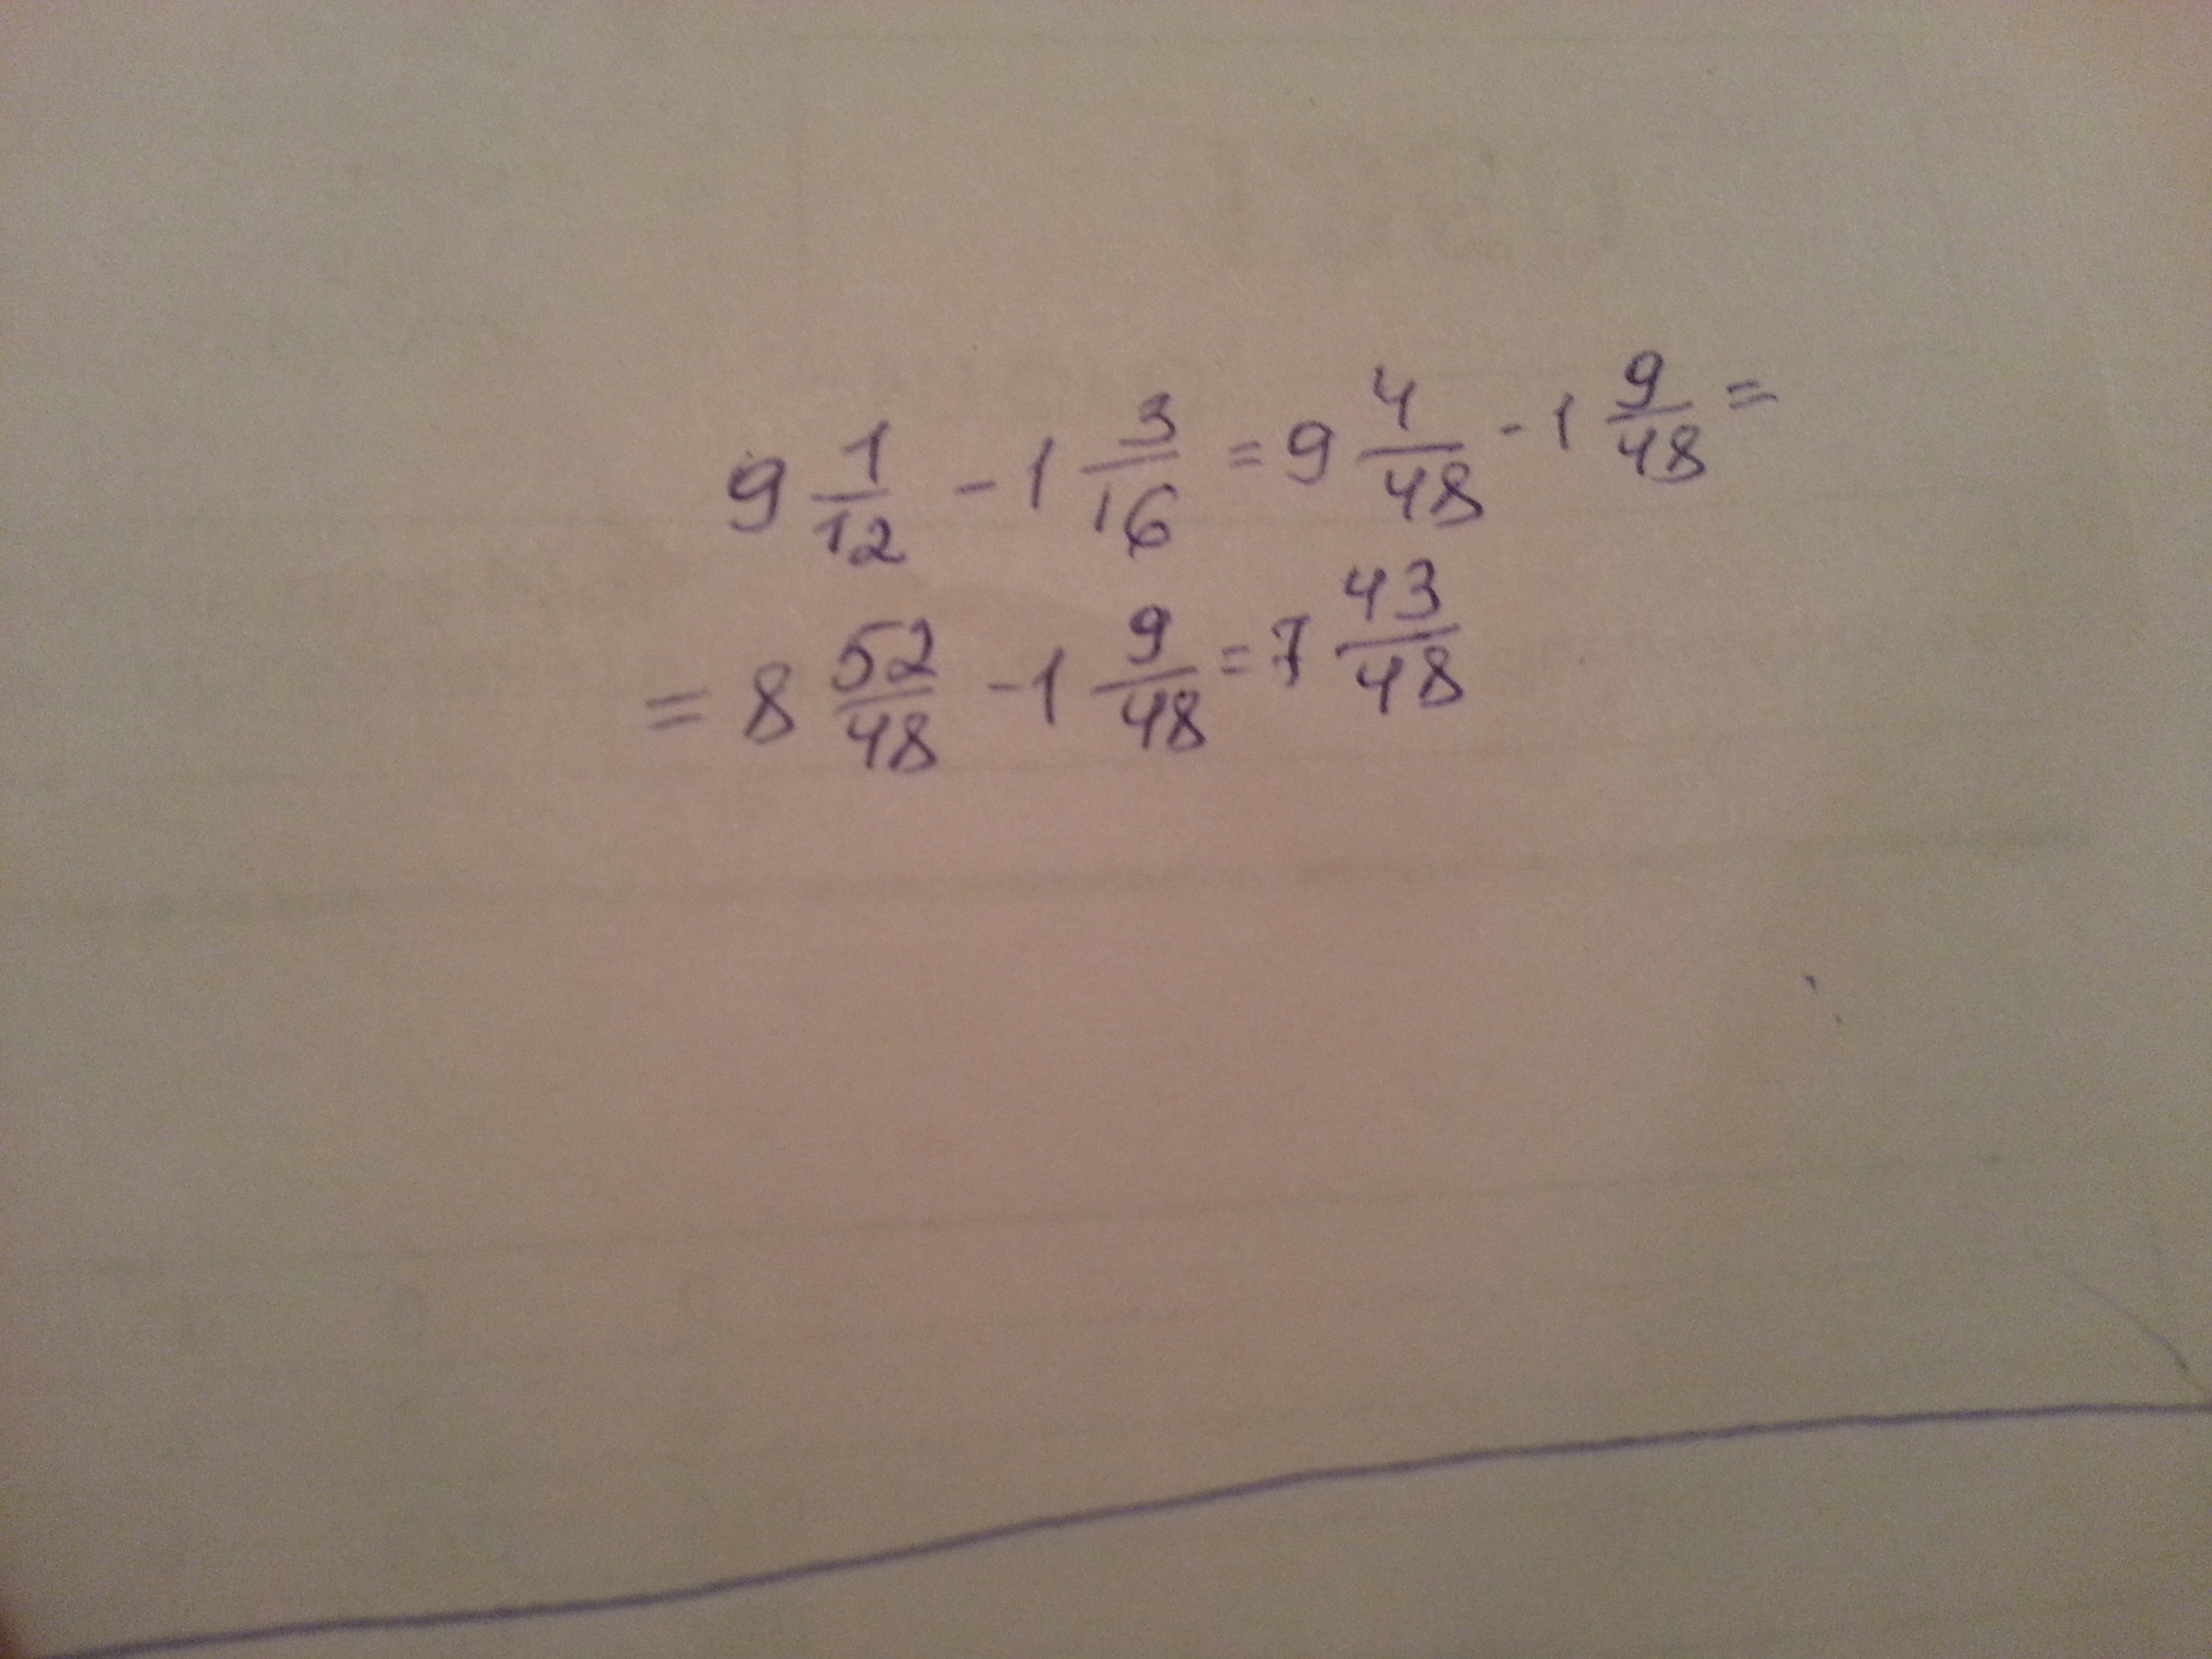 9 1/12 - 1 3/16 = 9 4/48 - 1 9/48 =
= 8 52/48 - 1 9/48 = 7 43/48